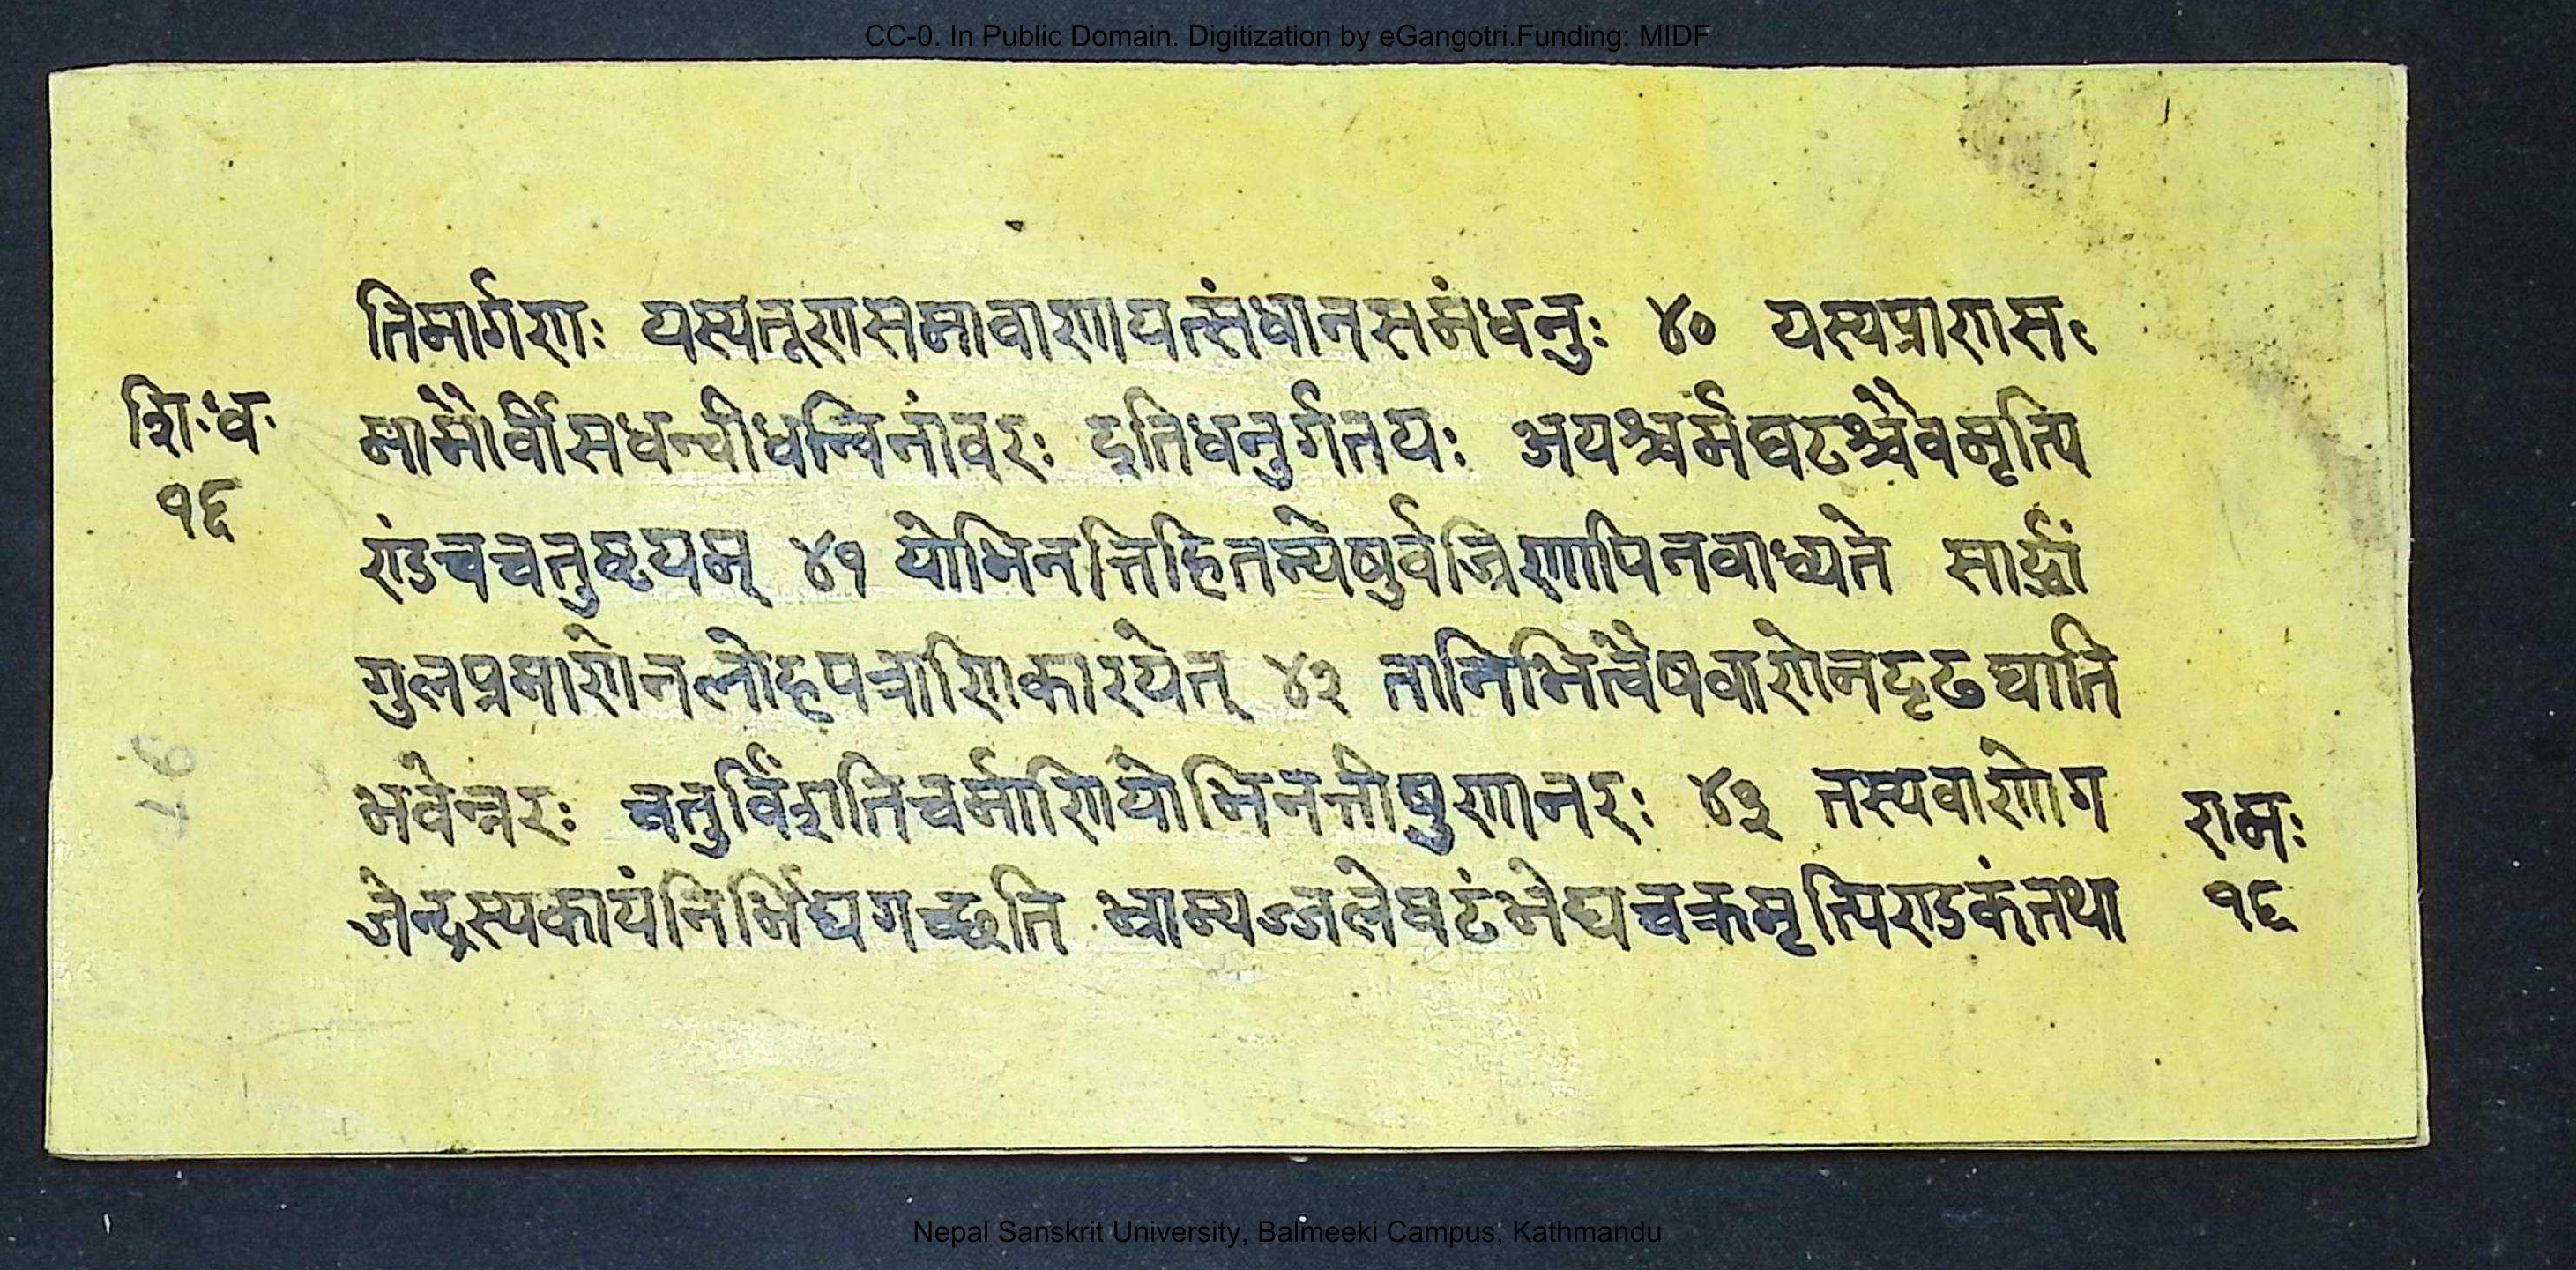 CC-0. In Public Domain. Digitization by eGangotri.Funding: MIDF
तिमार्गणः यस्यतूणसमावाणायत्संधानसमंधनुः ४० यस्यप्राणसः
शिःधः
१६
मामौर्वीसधन्वीधन्विनांवरः इतिधनुर्गतयः अयश्चर्मघटश्चैवमृत्पि
ण्डंचचतुष्टयम् ४१ योभिनत्तिहितन्येषुर्वज्रिणापिनवाध्यते सार्द्धां
गुलप्रमाणेनलोहपत्राणिकारयेत् ४२ तानिभित्वैषवाणेनदृढघाति
भवेन्नरः चतुर्विंशतिचर्माणियोभिनत्तीषुणानरः ४३ तस्यवाणोग
जेन्द्रस्यकायंनिर्भिद्यगच्छति भ्राम्यञ्जलेघटंभेद्यचक्रमृत्पिण्डकंतथा
रामः
१६
Nepal Sanskrit University, Balmeeki Campus, Kathmandu